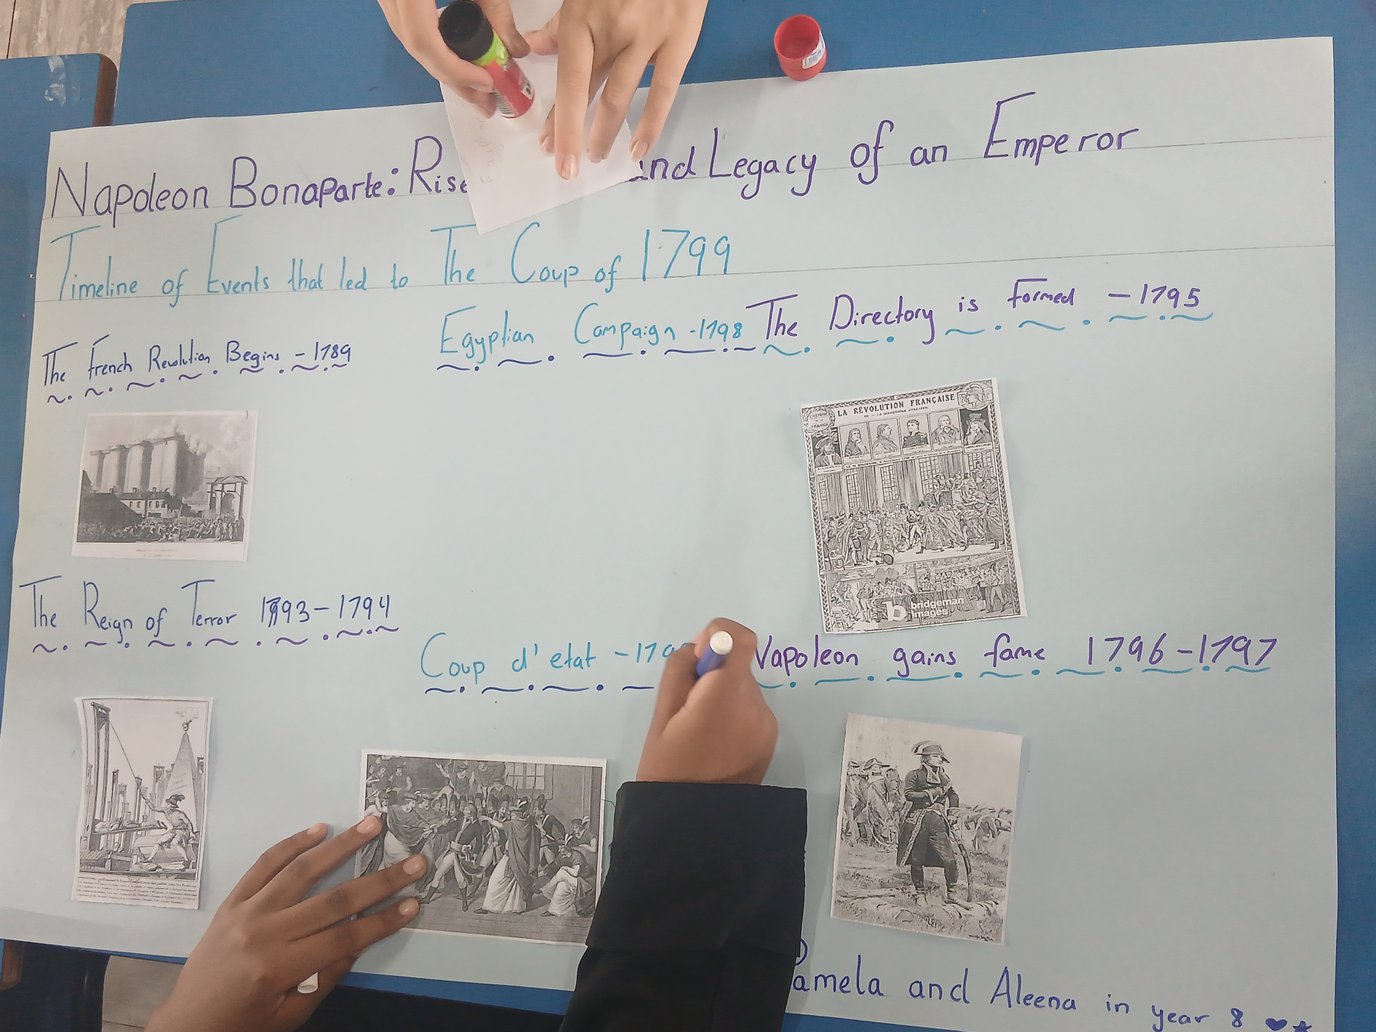 Napoleon Bonaparte: Rise and Legacy of an Emperor
Timeline of Events that led to The Coup of 1799
The French Revolution Begins - 1789
Egyptian Campaign - 1798
The Directory is formed - 1795
LA RÉVOLUTION FRANÇAISE
b bridgeman
images
The Reign of Terror 1793 - 1794
Coup d'etat - 179
Napoleon gains fame 1796 - 1797
Pamela and Aleena in year 8